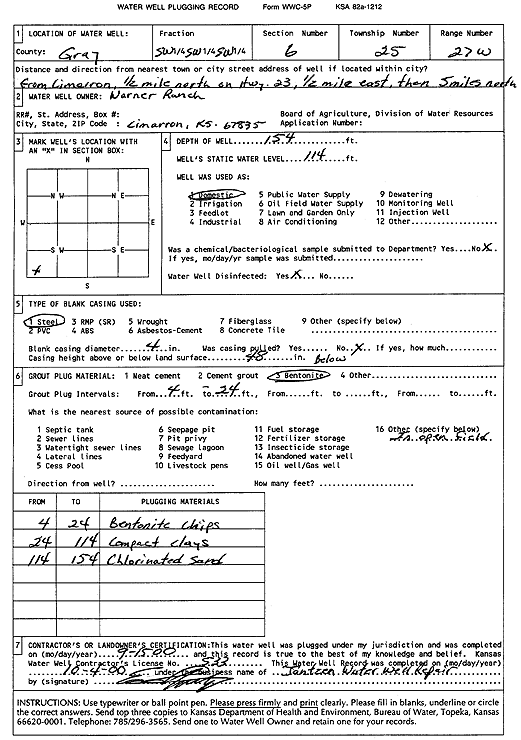 WATER WELL PLUGGING RECORD Form WWC-5P KSA 82a-1212
1 LOCATION OF WATER WELL: Fraction Section Number Township Number Range Number
County: Gray SW1/4 SW1/4 SW1/4 6 25 27W
Distance and direction from nearest town or city street address of well if located within city?
from Cimarron, 1/2 mile north on Hwy. 23, 1/2 mile east, then 5 miles north
2 WATER WELL OWNER: Warner Ranch
RR#, St. Address, Box #: Board of Agriculture, Division of Water Resources
City, State, ZIP Code : Cimarron, KS. 67835 Application Number:
3 MARK WELL'S LOCATION WITH AN "X" IN SECTION BOX:
N
N W N E
W E
S W S E
X
S
4 DEPTH OF WELL.......154..........ft.
WELL'S STATIC WATER LEVEL...114......ft.
WELL WAS USED AS:
1 Domestic 5 Public Water Supply 9 Dewatering
2 Irrigation 6 Oil Field Water Supply 10 Monitoring Well
3 Feedlot 7 Lawn and Garden Only 11 Injection Well
4 Industrial 8 Air Conditioning 12 Other..............
Was a chemical/bacteriological sample submitted to Department? Yes....No X.
If yes, mo/day/yr sample was submitted................
Water Well Disinfected: Yes X... No......
5 TYPE OF BLANK CASING USED:
1 Steel 3 RMP (SR) 5 Wrought 7 Fiberglass 9 Other (specify below)
2 PVC 4 ABS 6 Asbestos-Cement 8 Concrete Tile
Blank casing diameter....4....in. Was casing pulled? Yes...... No.X.. If yes, how much...........
Casing height above or below land surface.......48.......in. below
6 GROUT PLUG MATERIAL: 1 Neat cement 2 Cement grout 3 Bentonite 4 Other............
Grout Plug Intervals: From..4..ft. to.24..ft., From......ft. to ......ft., From......to......ft.
What is the nearest source of possible contamination:
1 Septic tank 6 Seepage pit 11 Fuel storage 16 Other (specify below)
2 Sewer lines 7 Pit privy 12 Fertilizer storage in open field.
3 Watertight sewer lines 8 Sewage lagoon 13 Insecticide storage
4 Lateral lines 9 Feedyard 14 Abandoned water well
5 Cess Pool 10 Livestock pens 15 Oil well/Gas well
Direction from well? .................. How many feet? ..................
FROM TO PLUGGING MATERIALS
4 24 Bentonite chips
24 114 Compact clays
114 154 Chlorinated sand
7 CONTRACTOR'S OR LANDOWNER'S CERTIFICATION: This water well was plugged under my jurisdiction and was completed
on (mo/day/year)....9-15-00...... and this record is true to the best of my knowledge and belief. Kansas
Water Well Contractor's License No. ...533........ This Water Well Record was completed on (mo/day/year)
.....10-4-00..... under the business name of ...Jantzen Water Well Repair
by (signature)
INSTRUCTIONS: Use typewriter or ball point pen. Please press firmly and print clearly. Please fill in blanks, underline or circle
the correct answers. Send top three copies to Kansas Department of Health and Environment, Bureau of Water, Topeka, Kansas
66620-0001. Telephone: 785/296-3565. Send one to Water Well Owner and retain one for your records.